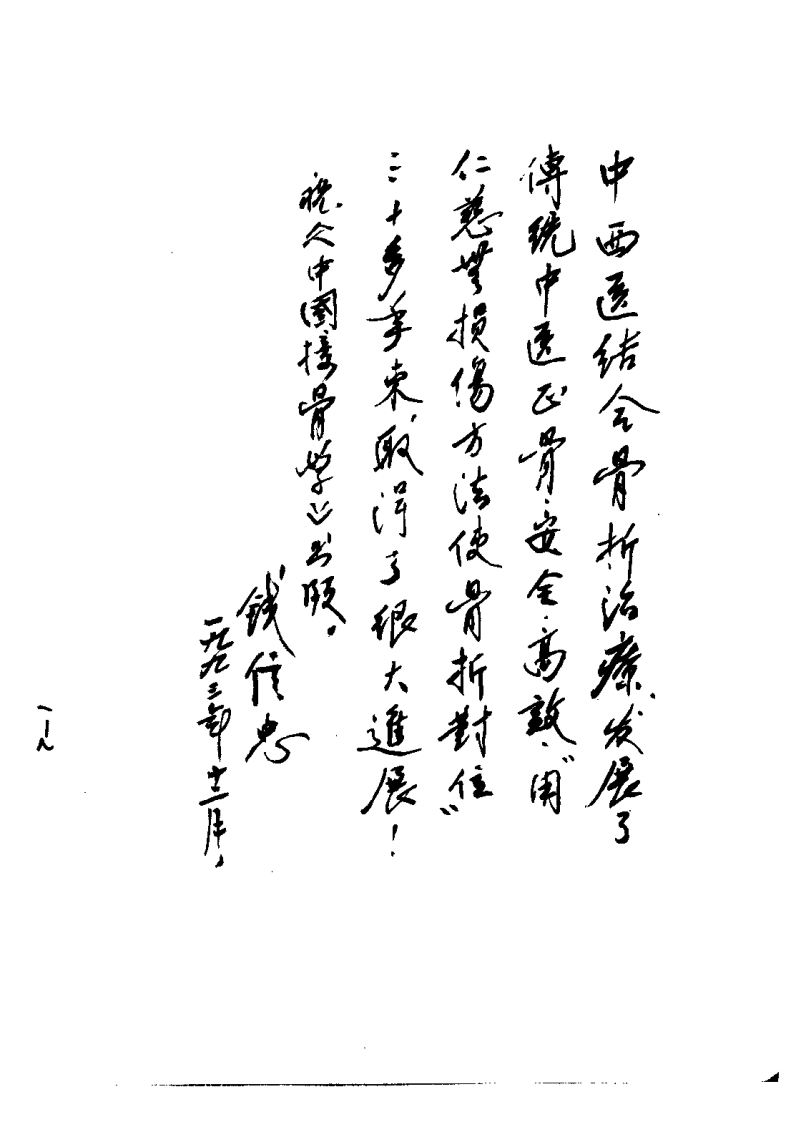 中西医结合骨折治療、发展了
傳統中医正骨、安全、高效、“用
仁慈無損傷方法使骨折對位”
三十多年来，取得了很大進展！
祝《中國接骨学》出版。
钱信忠
一九九三年十二月，